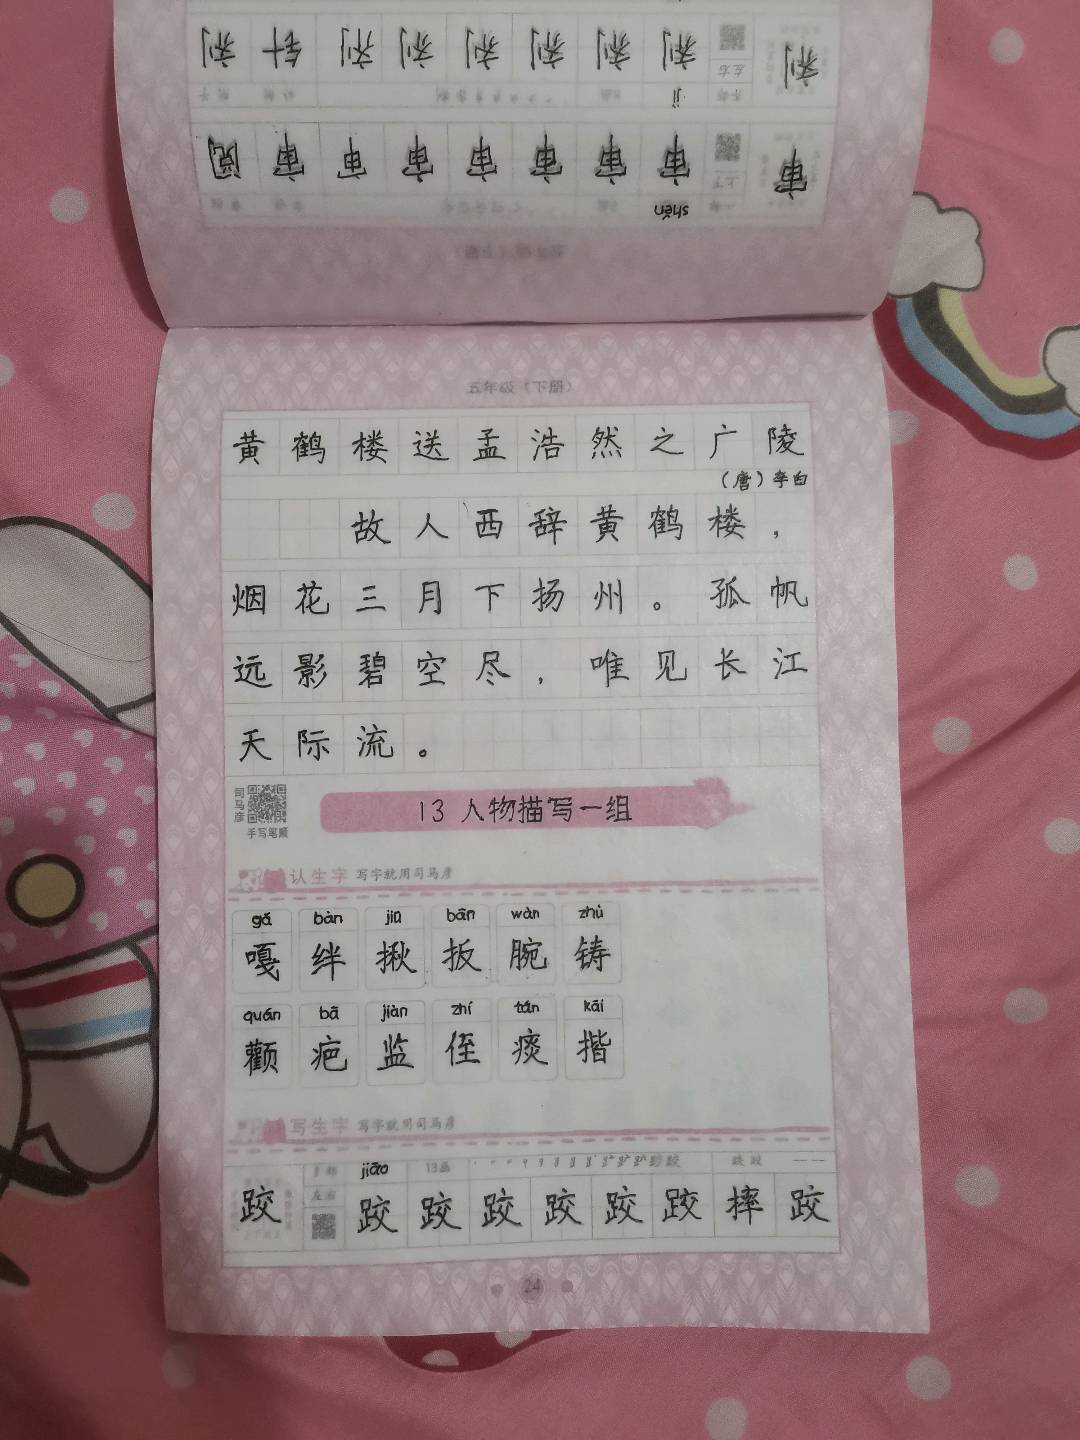 剂 针 剂 剂 剂 剂 剂 剂 剂
左右
jì
阅 审 审 审 审 审 审 审 审
上下
shěn
五年级（下册）
黄鹤楼送孟浩然之广陵
（唐）李白
故人西辞黄鹤楼，
烟花三月下扬州。孤帆
远影碧空尽，唯见长江
天际流。
司马彦
手写笔顺
13 人物描写一组
认生字 写字就用司马彦
gá bàn jiū bān wàn zhù
嘎 绊 揪 扳 腕 铸
quán bā jiàn zhí tán kāi
颧 疤 监 侄 痰 揩
写生字 写字就用司马彦
jiāo 13画
左右
跤 跤 跤 跤 跤 跤 跤 摔 跤
24